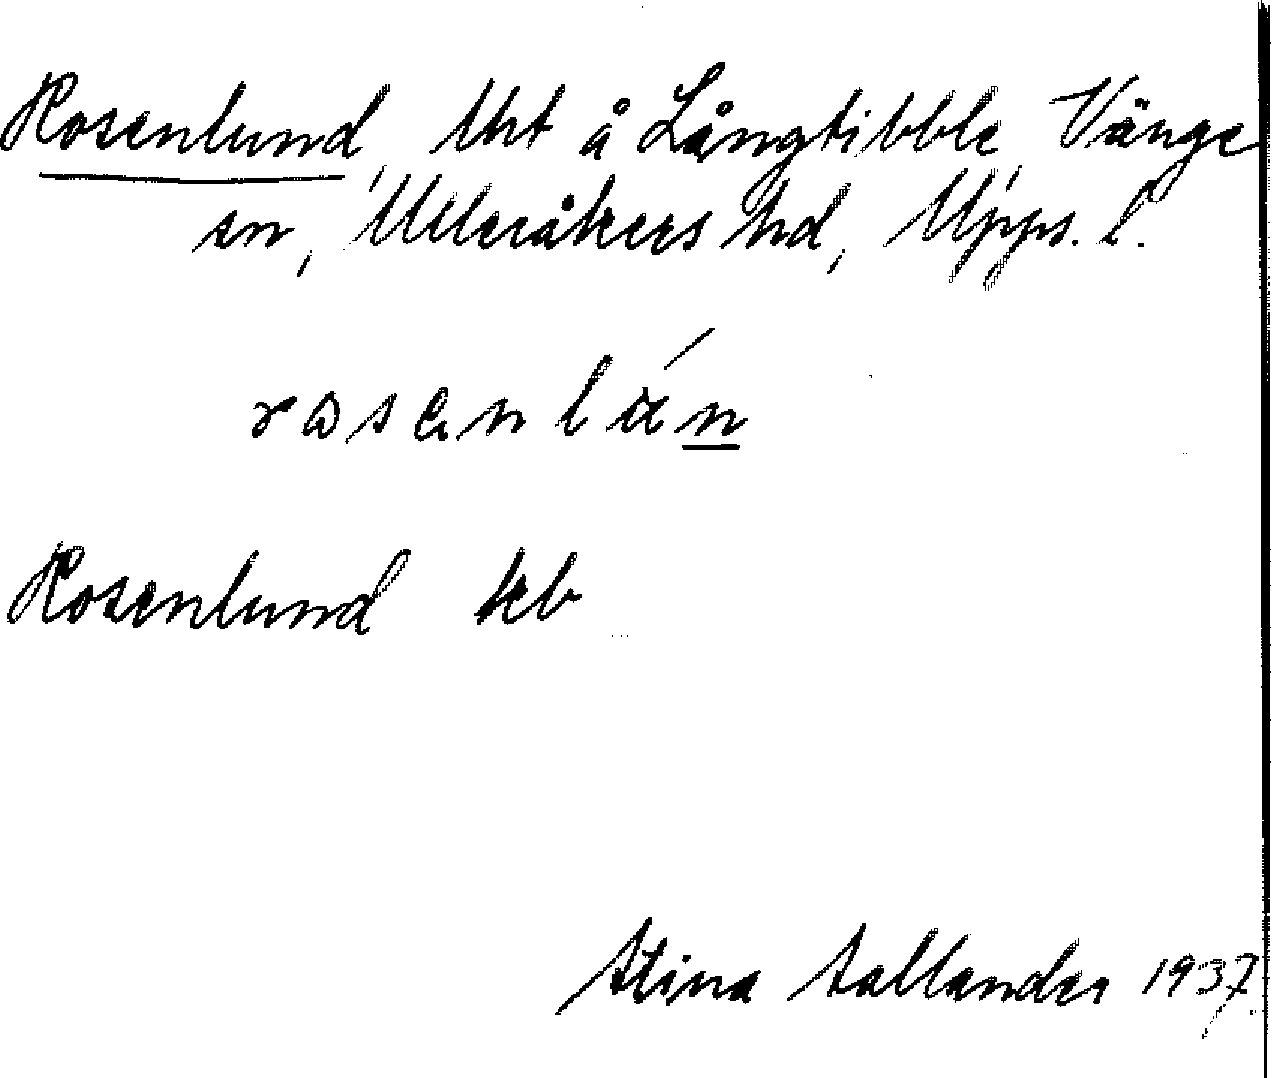 Rosenlund, lht å Långtibble, Vänge
sn, Ulleråkers hd, Upps. l.
Rosenlund kb
Stina Sallander 1937.